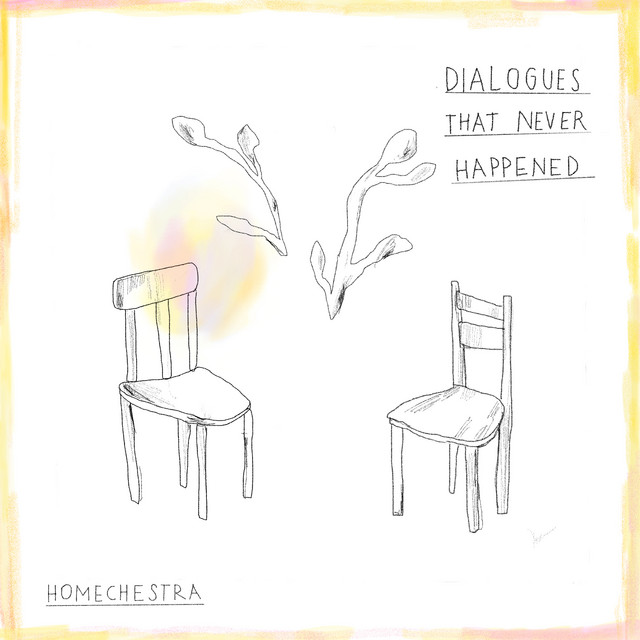 DIALOGUES
THAT NEVER
HAPPENED
HOMECHESTRA